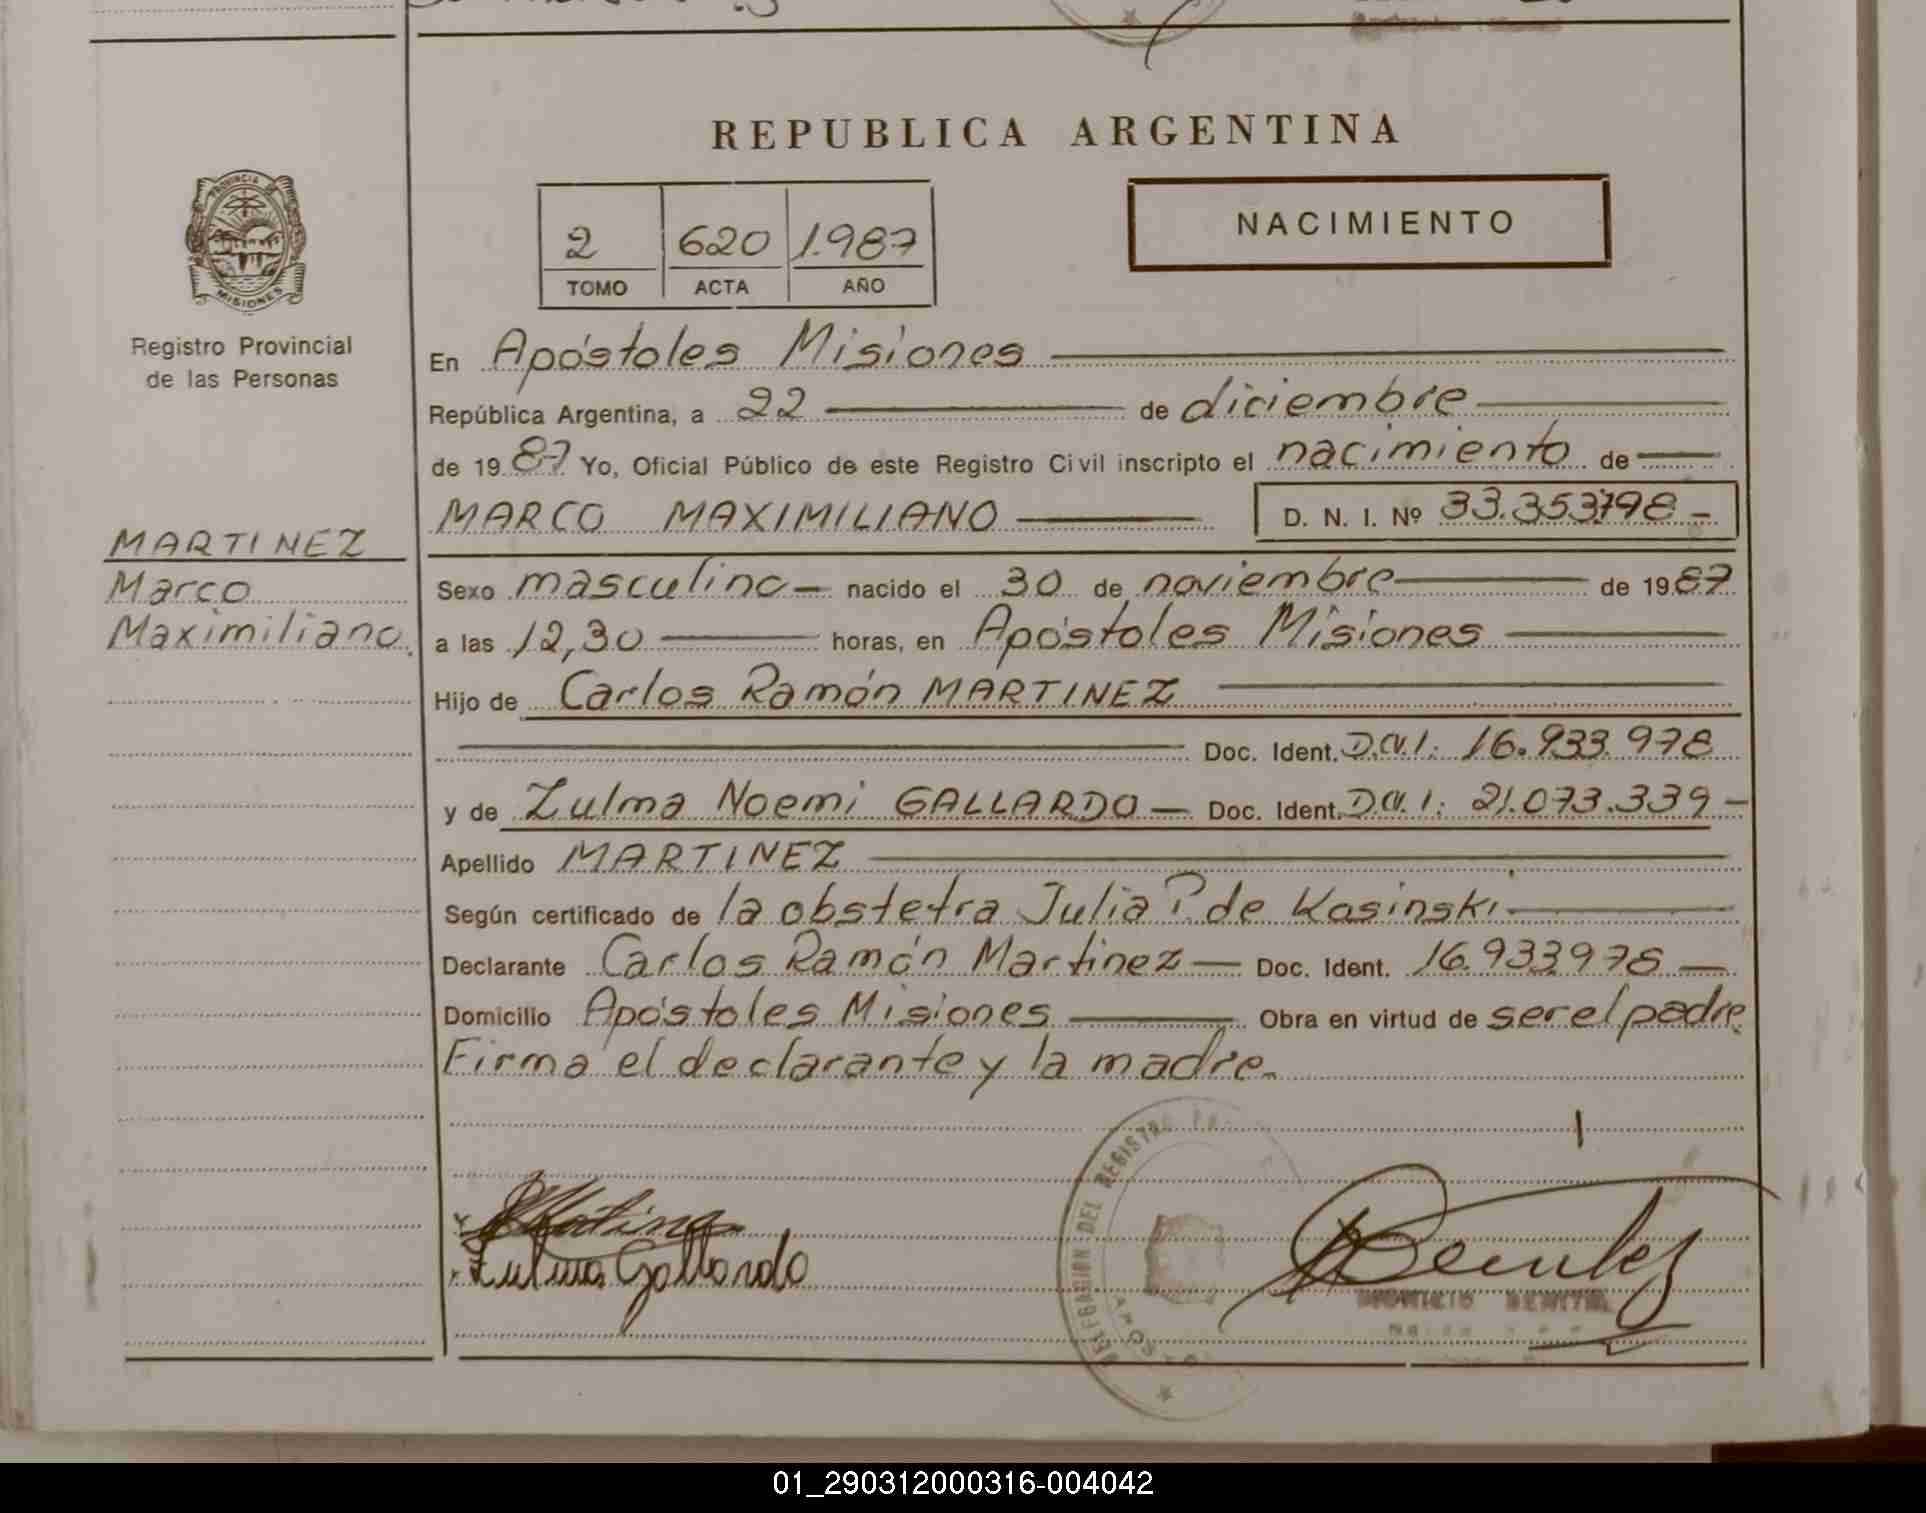 REPUBLICA ARGENTINA
PROVINCIA DE
MISIONES
Registro Provincial
de las Personas
MARTINEZ
Marco
Maximiliano.
2 620 1.987
TOMO ACTA AÑO
NACIMIENTO
En Apóstoles Misiones
República Argentina, a 22 de diciembre
de 1987 Yo, Oficial Público de este Registro Civil inscripto el nacimiento de
MARCO MAXIMILIANO D. N. I. Nº 33.353.798 -
Sexo masculino - nacido el 30 de noviembre de 1987
a las 12,30 horas, en Apóstoles Misiones
Hijo de Carlos Ramón MARTINEZ
Doc. Ident. D.N.I: 16.933.978
y de Zulma Noemi GALLARDO - Doc. Ident. D.N.I: 21.073.339 -
Apellido MARTINEZ
Según certificado de la obstetra Julia P. de Kosinski
Declarante Carlos Ramón Martinez - Doc. Ident. 16.933978 -
Domicilio Apóstoles Misiones Obra en virtud de ser el padre.
Firma el declarante y la madre.
Zulma Gallardo
DELEGACION DEL REGISTRO
01_290312000316-004042